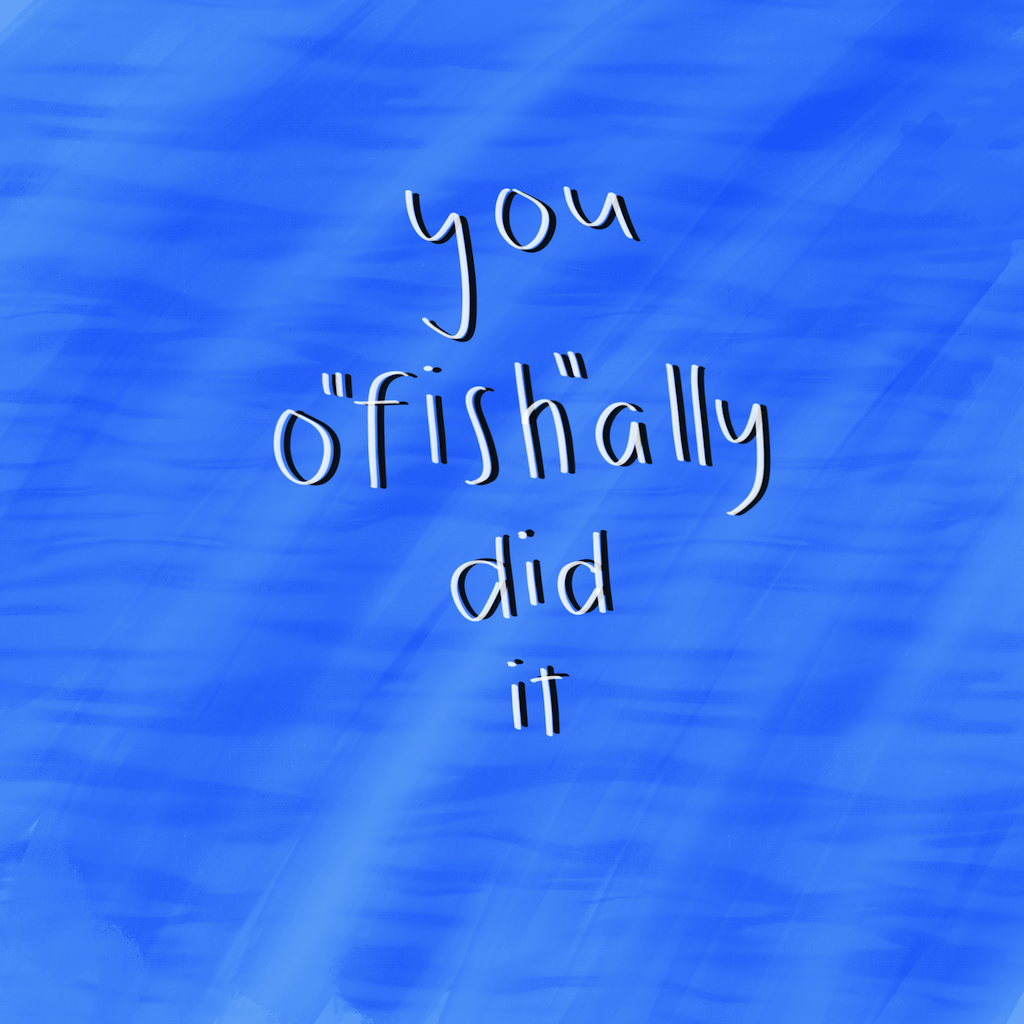 you
o"fish"ally
did
it